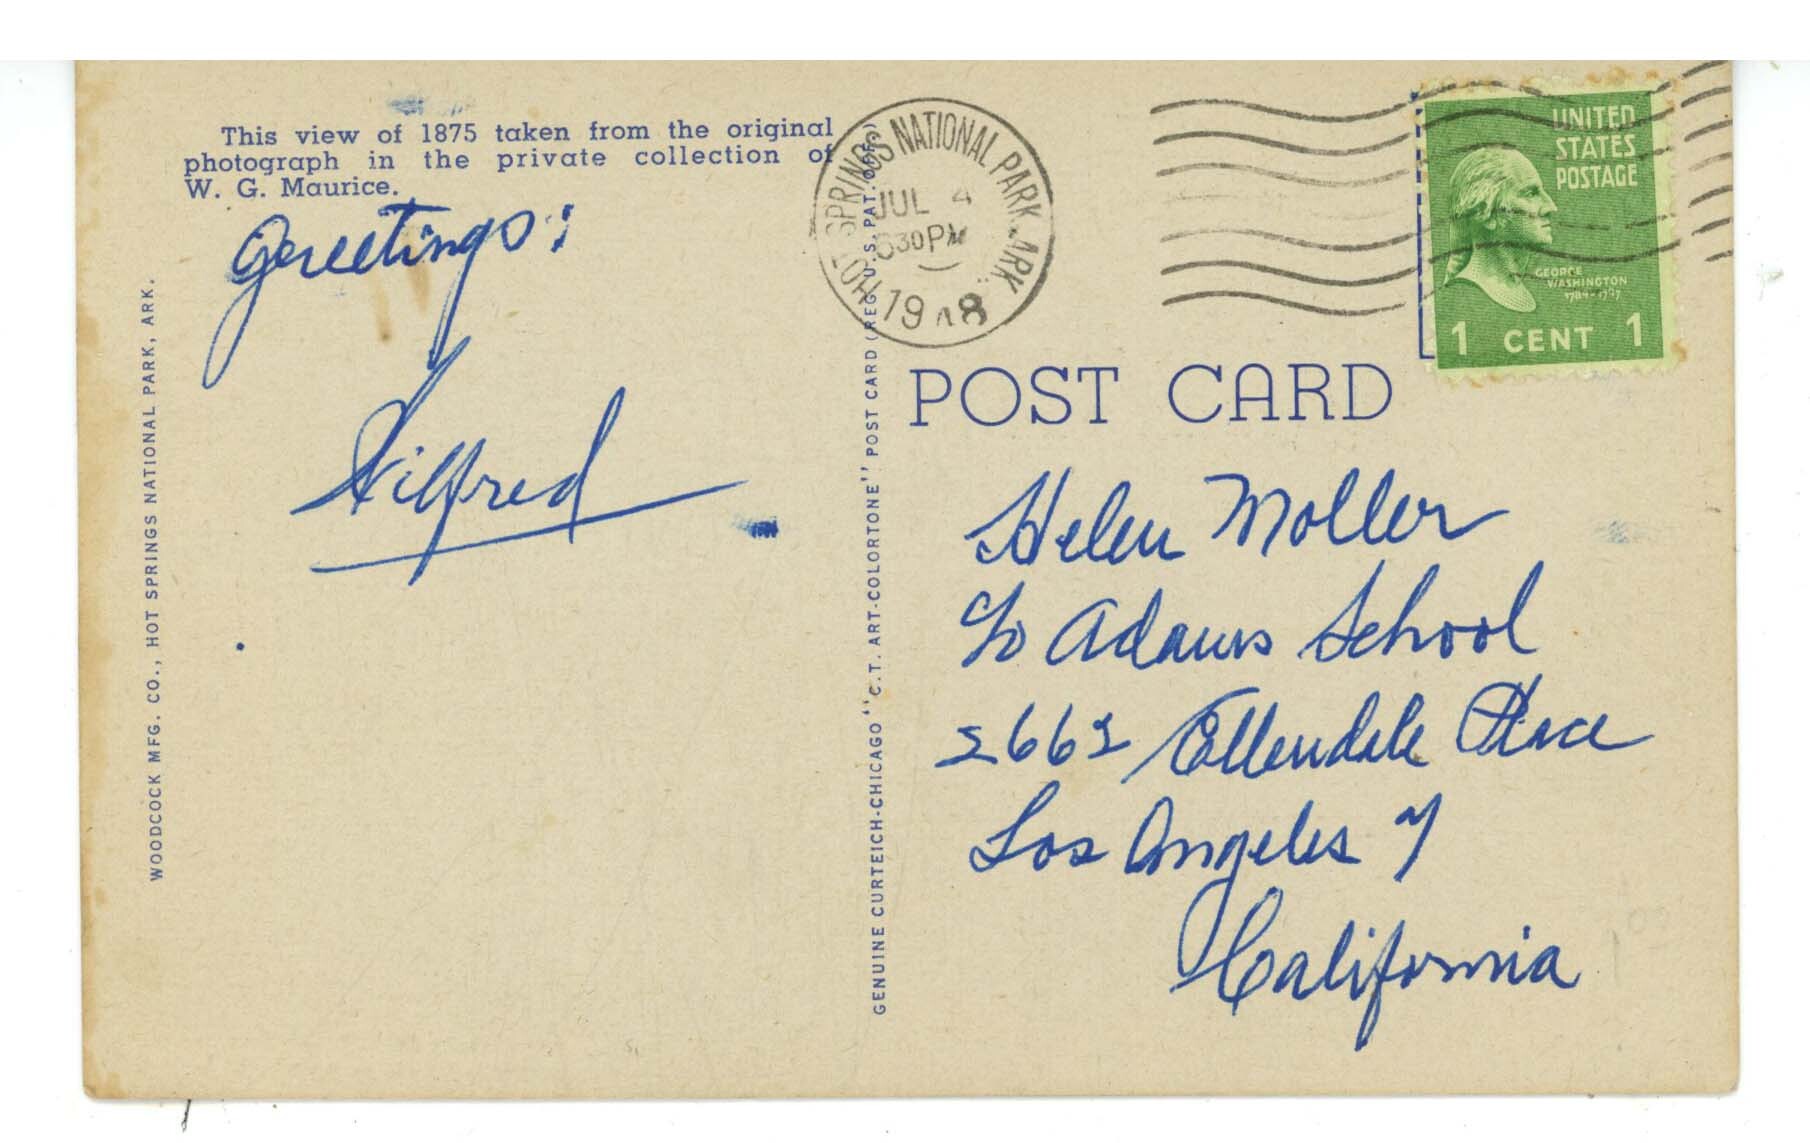 This view of 1875 taken from the original
photograph in the private collection of
W. G. Maurice.
Greetings:
Wilfred
WOODCOCK MFG. CO., HOT SPRINGS NATIONAL PARK, ARK.
GENUINE CURTEICH-CHICAGO "C.T. ART-COLORTONE" POST CARD (REG. U.S. PAT. OFF.)
HOT SPRINGS NATIONAL PARK, ARK.
JUL 4
30 PM
1948
UNITED
STATES
POSTAGE
GEORGE
WASHINGTON
1 CENT 1
POST CARD
Helen Moller
c/o Adams School
2662 Ellendale Place
Los Angeles 7
California